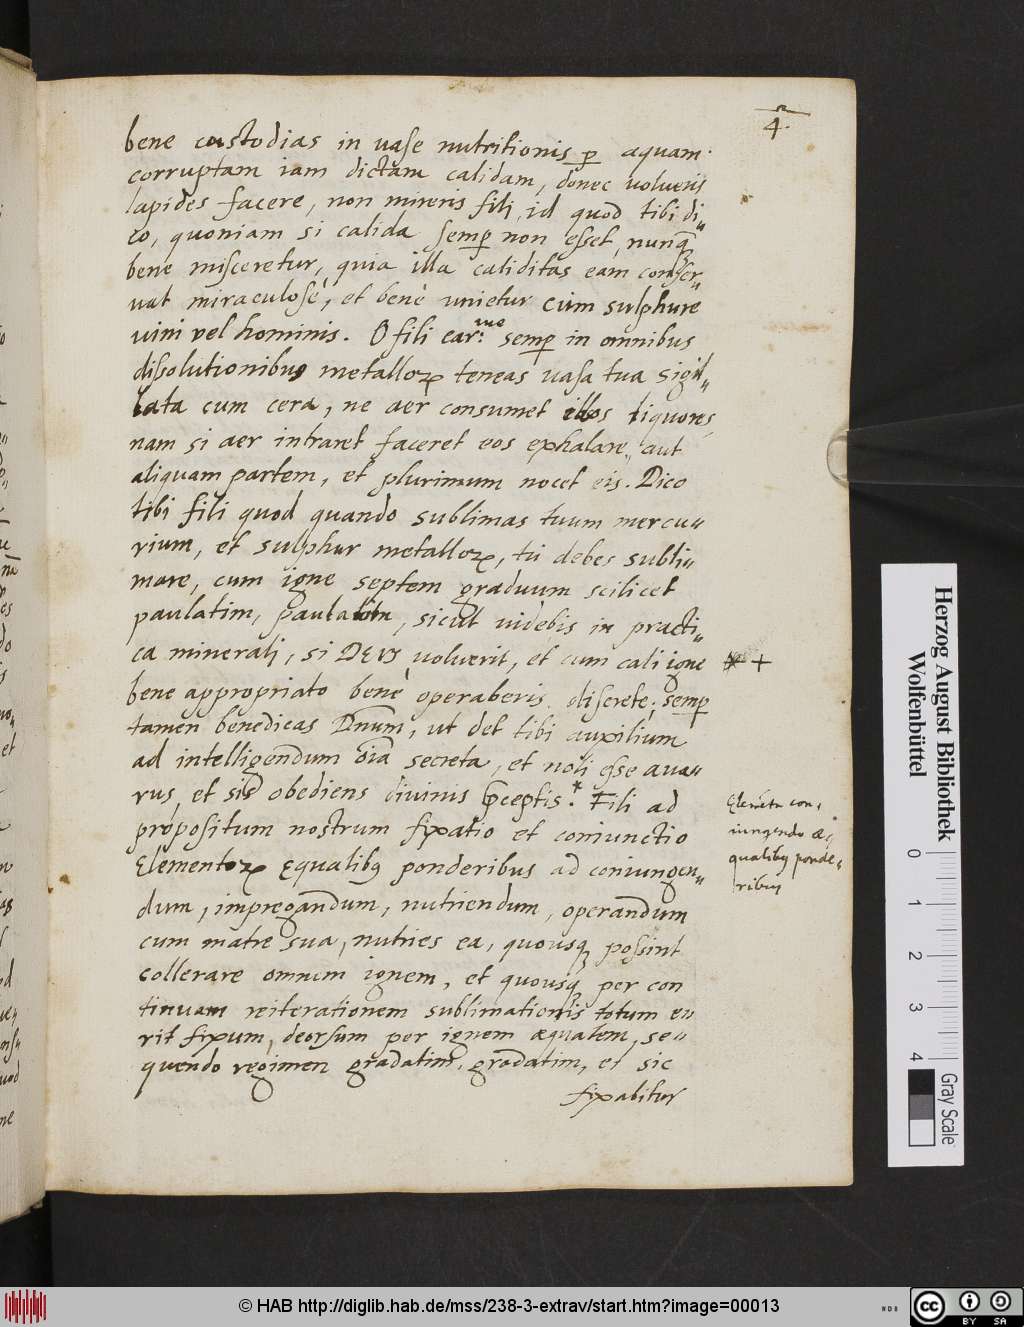 4.
bene custodias in uase nutritionis p aquam
corruptam iam dictam calidam, donec volueris
lapides facere, non mireris fili, id quod tibi di„
co, quoniam si calida semp non esset, nunq̄
bene misceretur, quia illa caliditas eam conser„
uat miraculosè, et benè unietur cum sulphure
uini vel hominis. O fili car:me semp in omnibus
dissolutionibus metalloꝝ teneas uasa tua sigil„
lata cum cera, ne aer consumet illos liquores,
nam si aer intraret faceret eos exhalare, aut
aliquam partem, et plurimum nocet eis. Dico
tibi fili quod quando sublimas tuum mercu„
rium, et sulphur metalloꝝ, tú debes subli„
mare, cum igne septem graduum scilicet
paulatim, paulatim, sicut videbis in practi„
ca minerali, si DEUS uoluerit, et cum tali igne
* +
bene appropriato benè operaberis discrete; semp
tamen benedicas Dnum, ut det tibi auxilium
ad intelligendum oīa secreta, et noli esse aua„
rus, et sis obediens diuinis pceptis.* Fili ad
propositum nostrum fixatio et coniunctio
Elementoꝝ Equalibꝰ ponderibus ad coniungen„
dum, impregnandum, nutriendum, operandum
cum matre sua, nutries ea, quousqꝫ possint
tollerare omnem ignem, et quousqꝫ per con
tinuam reiterationem sublimationis totum e„
rit fixum, deorsum per ignem æqualem, se„
quendo regimen gradatim, gradatim, et sic
fixabitur
Elemēta con„
iungendo æ„
qualibꝰ ponde„
ribus
Herzog August Bibliothek
Wolfenbüttel
0 1 2 3 4
Gray Scale
© HAB http://diglib.hab.de/mss/238-3-extrav/start.htm?image=00013
cc BY SA